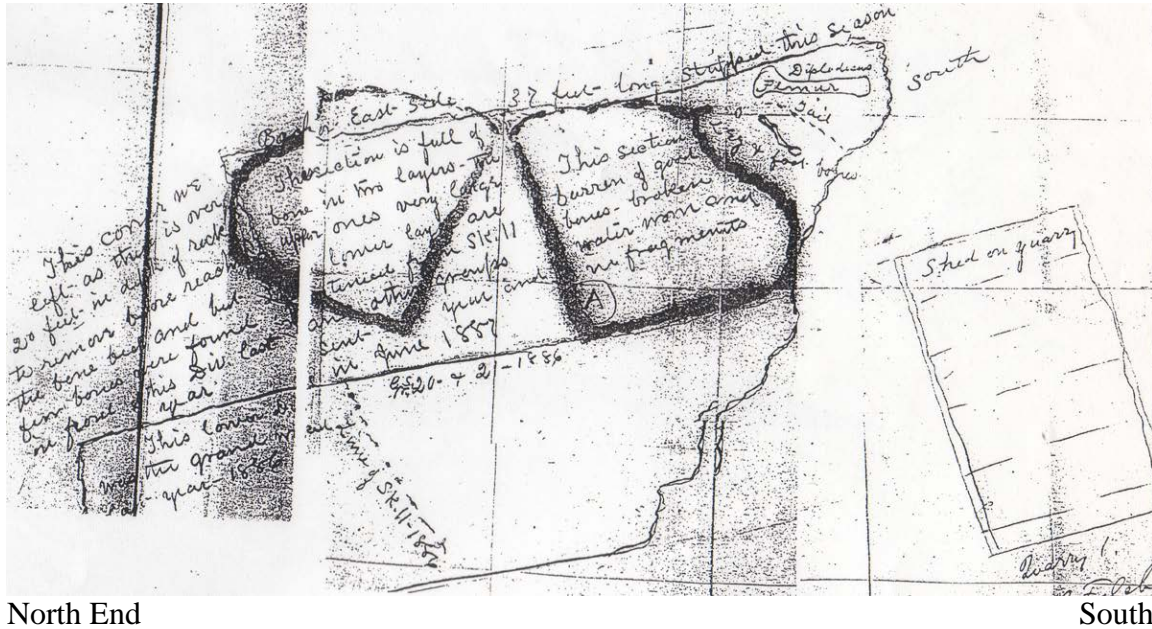 Bank on East-Side 37 feet-long stripped this season
South
Diplodocus
Femur
Tail
leg & foot bones
This corner NE
left-as there is over
20 feet in depth of rock
to remove before reaching
the bone bed and but
few bones were found
in front of this Div last
year.
This section is full of
bone in two layers the
upper ones very large
lower layer are
SK-11
and other groups
sent last year and
in June 1887
This section
barren of good
bones-broken
water worn and
in fragments
A
20-& 21-1886
tail line of SK-11-1886
This corner
was the grand
year-1886
Shed on quarry
Quarry 1.
North End
South